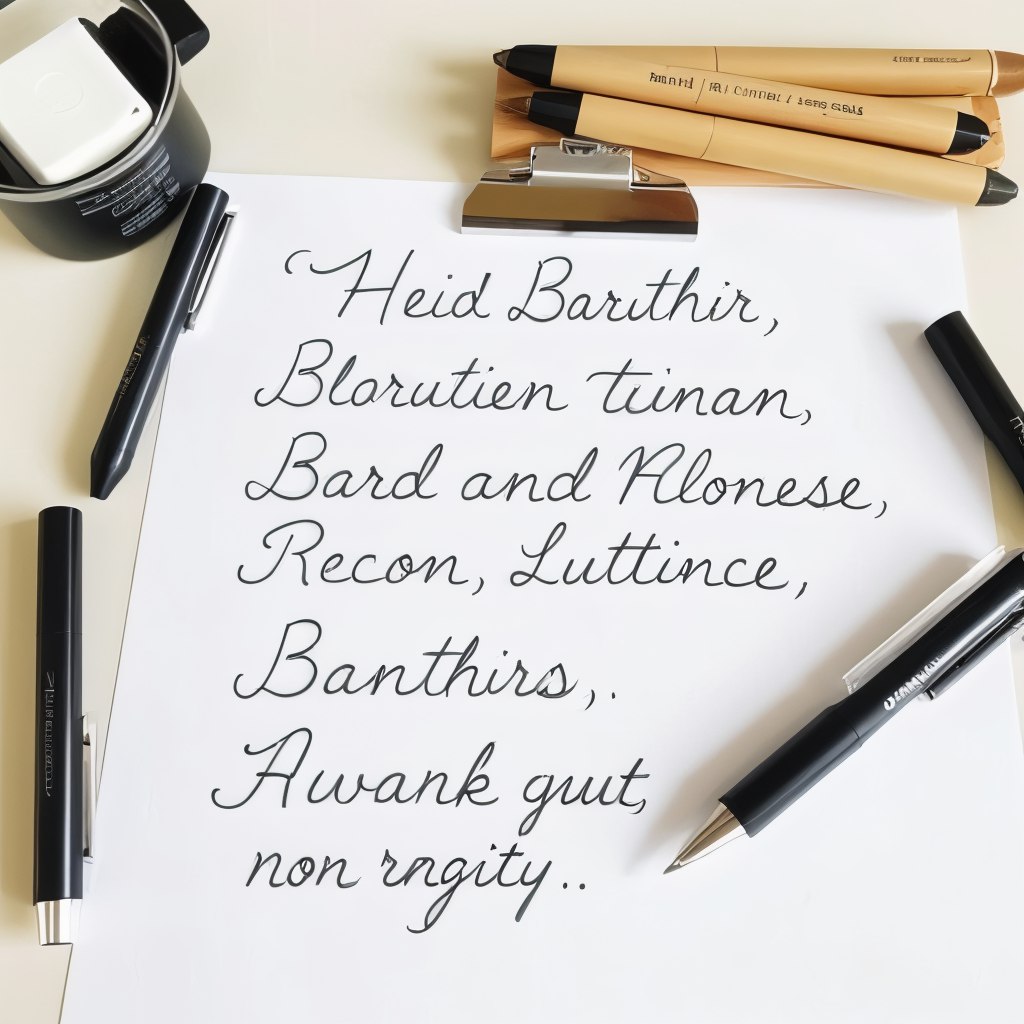 Heid Baruthir,
Blorutien tuinan,
Bard and Alonese,
Recon, Luttince,
Banthirs,.
Awank guut,
non rngity..